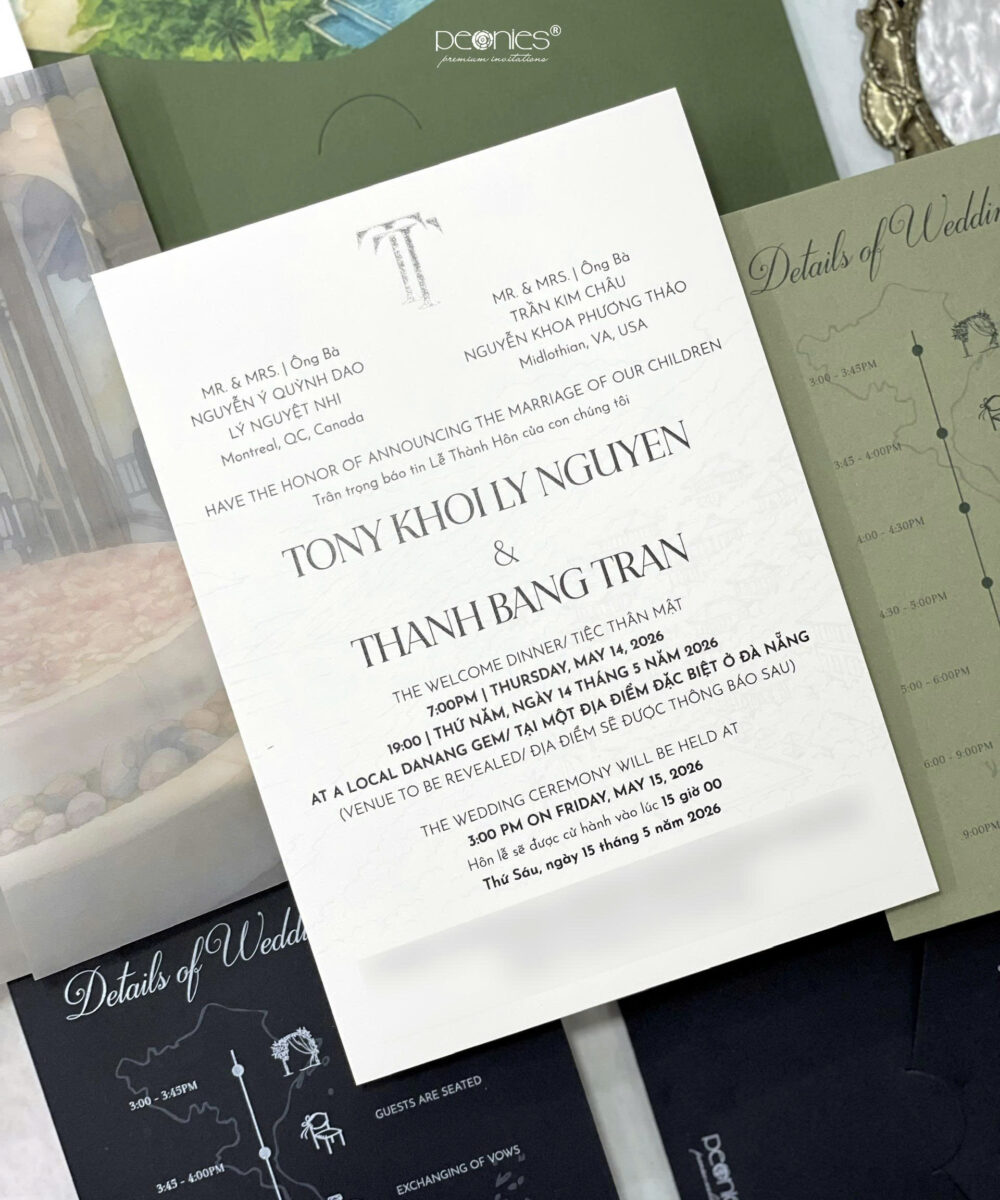 peonies®
premium invitations
T
MR. & MRS. | Ông Bà
NGUYỄN Ý QUỲNH DAO
LÝ NGUYỆT NHI
Montreal, QC, Canada
MR. & MRS. | Ông Bà
TRẦN KIM CHÂU
NGUYỄN KHOA PHƯƠNG THẢO
Midlothian, VA, USA
HAVE THE HONOR OF ANNOUNCING THE MARRIAGE OF OUR CHILDREN
Trân trọng báo tin Lễ Thành Hôn của con chúng tôi
TONY KHOI LY NGUYEN
&
THANH BANG TRAN
THE WELCOME DINNER/ TIỆC THÂN MẬT
7:00PM | THURSDAY, MAY 14, 2026
19:00 | THỨ NĂM, NGÀY 14 THÁNG 5 NĂM 2026
AT A LOCAL DANANG GEM/ TẠI MỘT ĐỊA ĐIỂM ĐẶC BIỆT Ở ĐÀ NẴNG
(VENUE TO BE REVEALED/ ĐỊA ĐIỂM SẼ ĐƯỢC THÔNG BÁO SAU)
THE WEDDING CEREMONY WILL BE HELD AT
3:00 PM ON FRIDAY, MAY 15, 2026
Hôn lễ sẽ được cử hành vào lúc 15 giờ 00
Thứ Sáu, ngày 15 tháng 5 năm 2026
Details of Weddin
3:00 - 3:45PM
3:45 - 4:00PM
4:00 - 4:30PM
4:30 - 5:00PM
5:00 - 6:00PM
6:00 - 9:00PM
9:00PM
Details of Weddi
3:00 - 3:45PM
GUESTS ARE SEATED
3:45 - 4:00PM
EXCHANGING OF VOWS
peonies